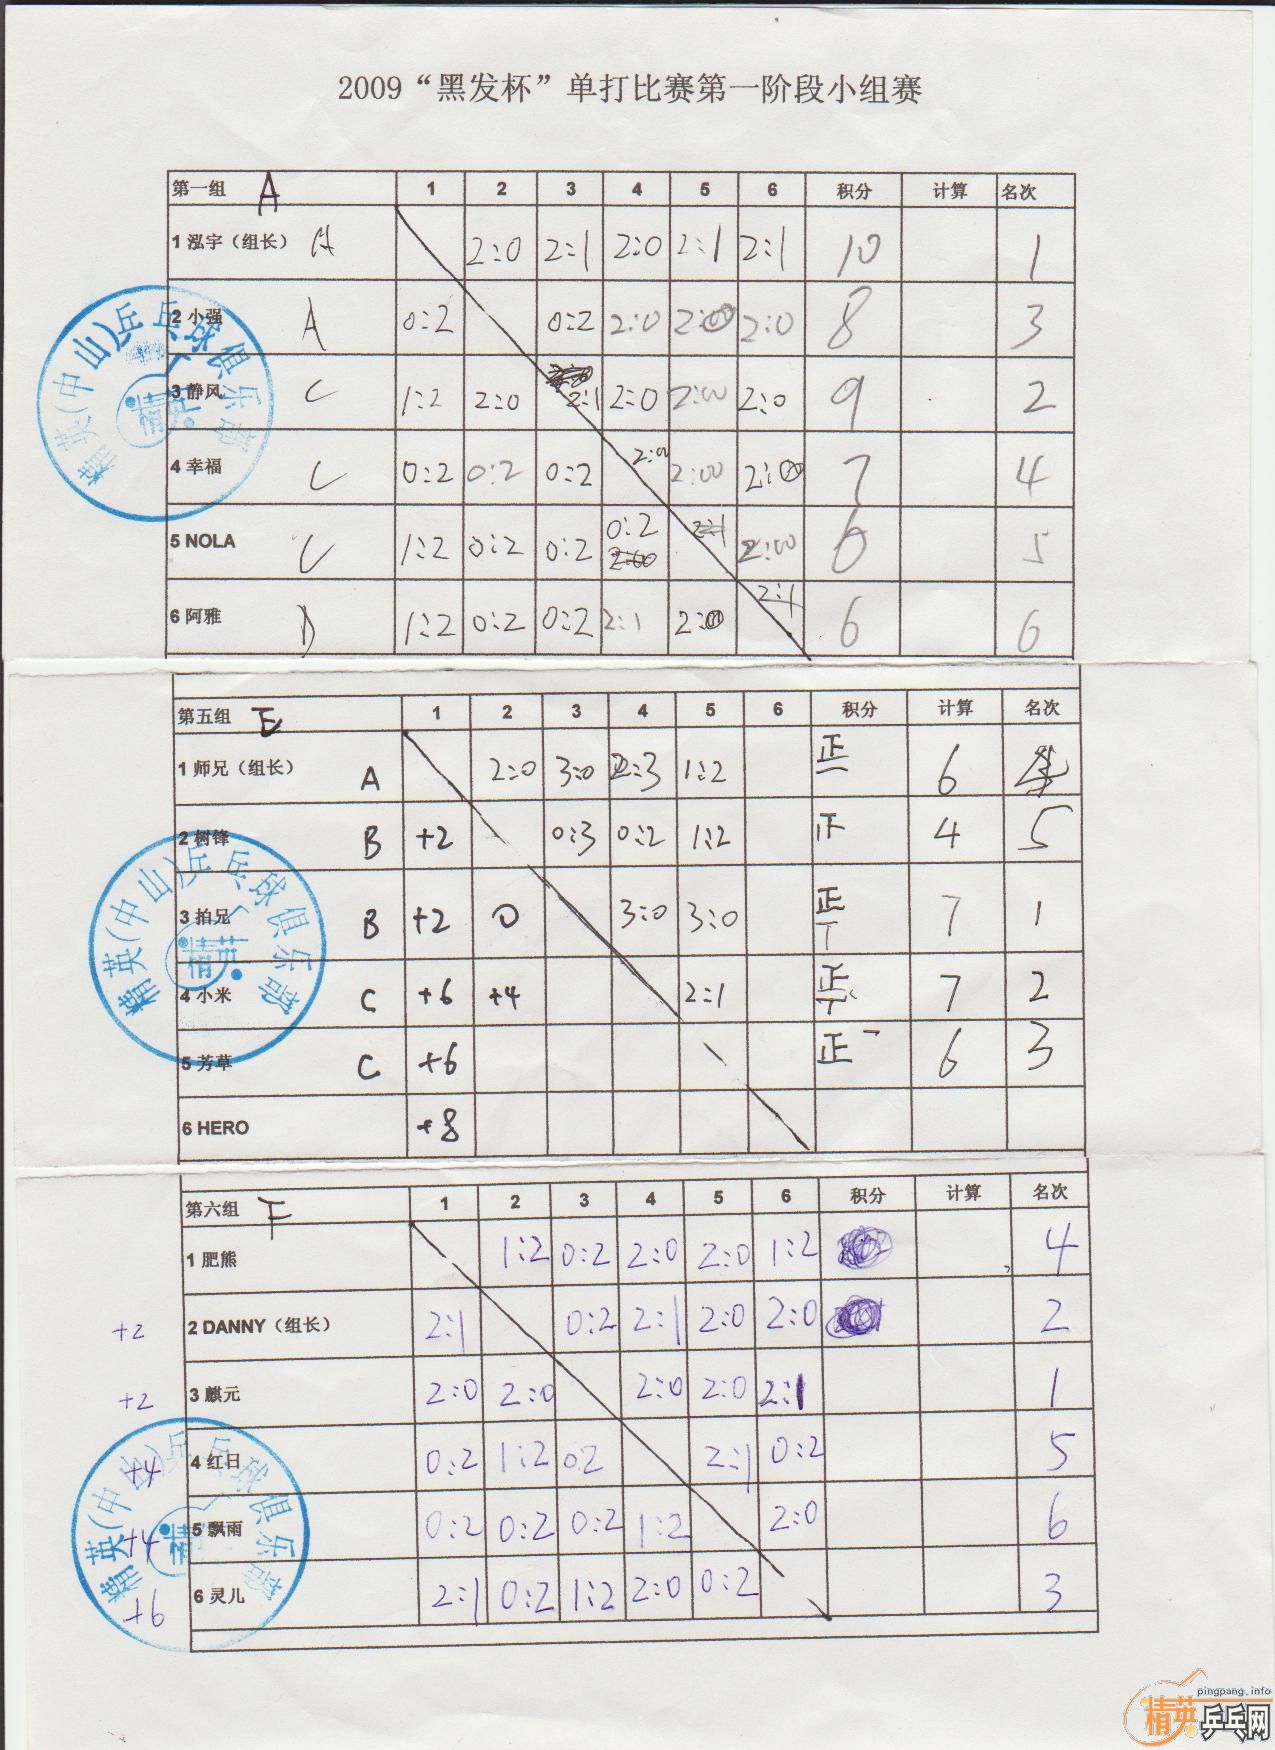 2009“黑发杯”单打比赛第一阶段小组赛
第一组 A 1 2 3 4 5 6 积分 计算 名次
1 泓宇（组长） A 2:0 2:1 2:0 2:1 2:1 10 1
2 小强 A 0:2 0:2 2:0 2:0 2:0 8 3
3 静风 C 1:2 2:0 2:1 2:0 2:0 2:0 9 2
4 幸福 C 0:2 0:2 0:2 2:0 2:0 2:0 7 4
5 NOLA C 1:2 0:2 0:2 0:2 2:1 2:00 6 5
6 阿雅 D 1:2 0:2 0:2 2:1 2:0 2:1 6 6
第五组 E 1 2 3 4 5 6 积分 计算 名次
1 师兄（组长） A 2:0 3:0 2:3 1:2 正一 6
2 树锋 B +2 0:3 0:2 1:2 4 5
3 拍兄 B +2 0 3:0 3:0 正丅 7 1
4 小米 C +6 +4 2:1 正丅 7 2
5 芳草 C +6 正一 6 3
6 HERO +8
第六组 F 1 2 3 4 5 6 积分 计算 名次
1 肥熊 1:2 0:2 2:0 2:0 1:2 4
+2 2 DANNY（组长） 2:1 0:2 2:1 2:0 2:0 2
+2 3 麒元 2:0 2:0 2:0 2:0 2:1 1
+4 4 红日 0:2 1:2 0:2 2:1 0:2 5
+4 5 飘雨 0:2 0:2 0:2 1:2 2:0 6
+6 6 灵儿 2:1 0:2 1:2 2:0 0:2 3
精英(中山)乒乓球俱乐部
精英
精英(中山)乒乓球俱乐部
精英
精英(中山)乒乓球俱乐部
精英
pingpang.info
精英乒乓网